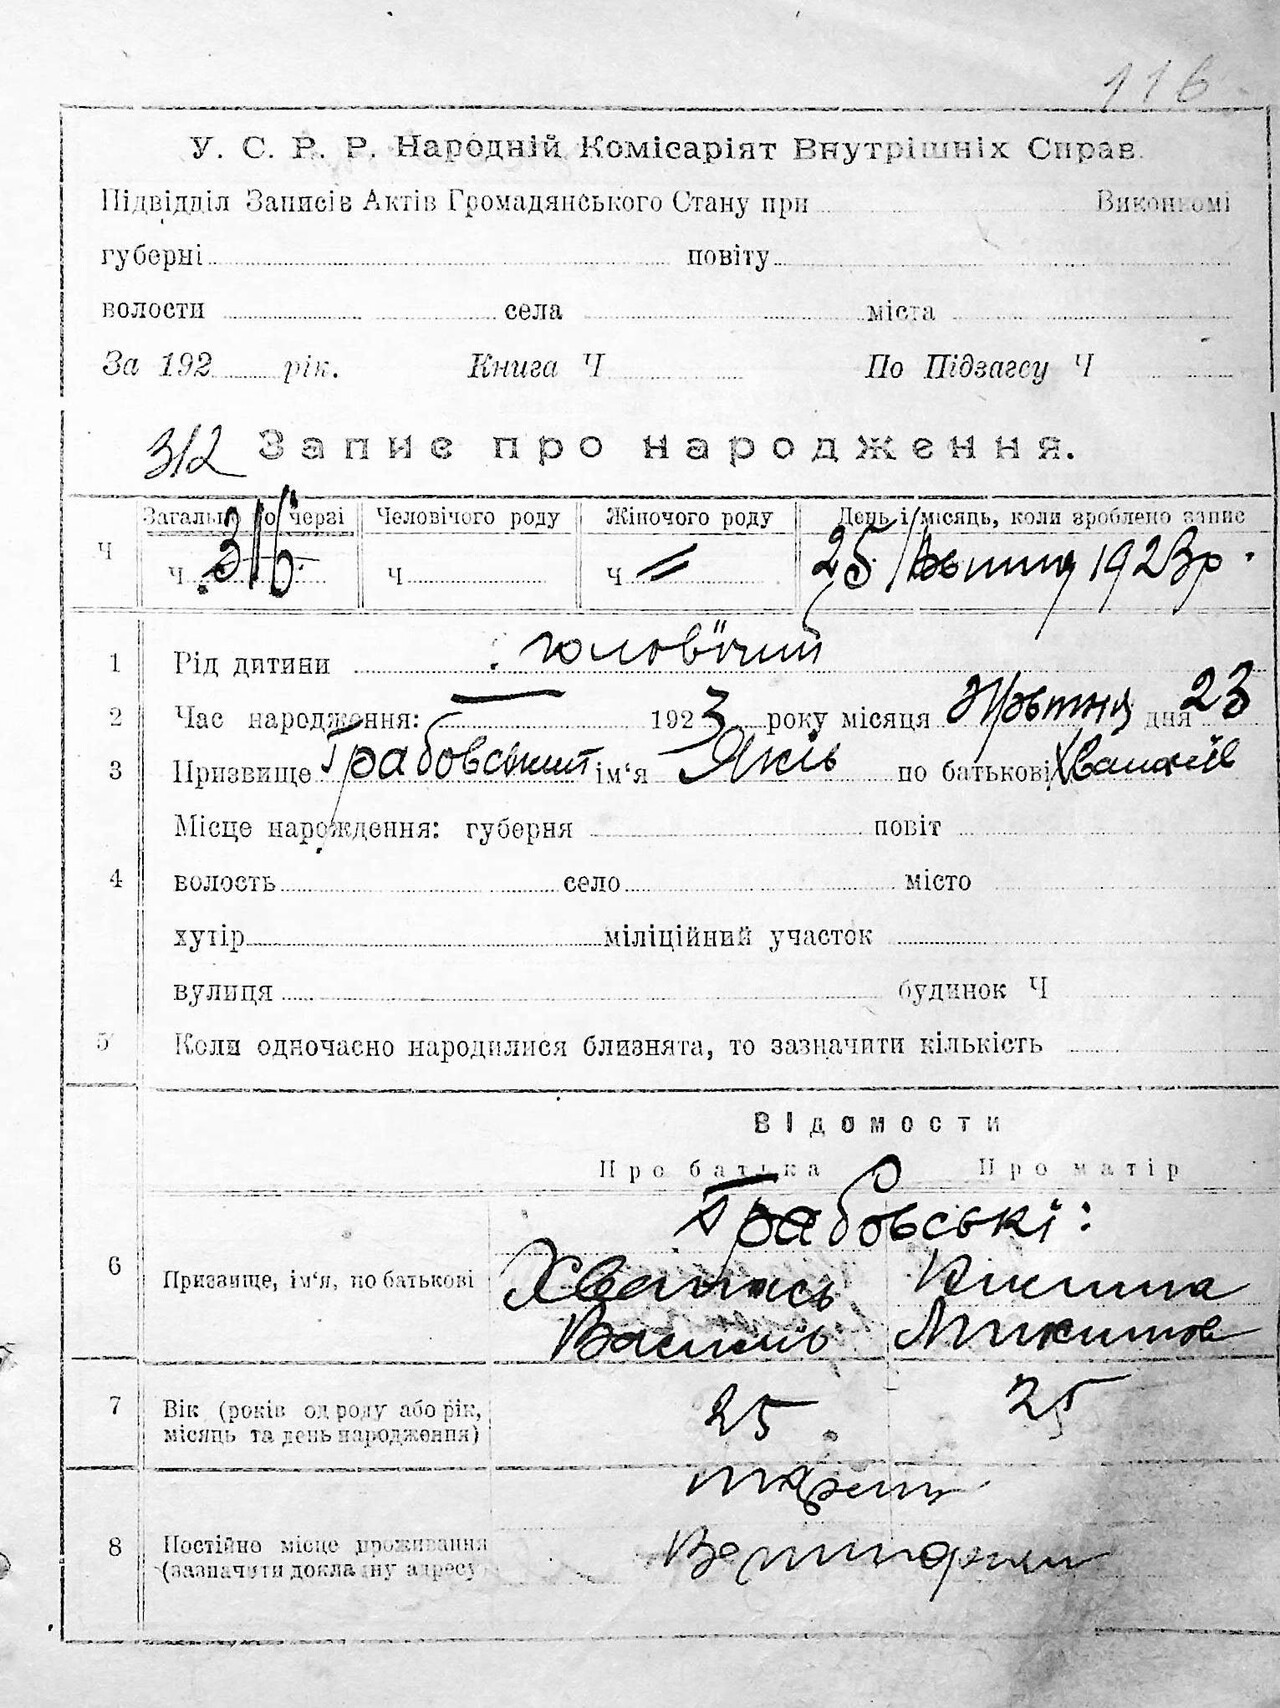 116
У. С. Р. Р. Народній Комісаріят Внутрішніх Справ.
Підвідділ Записів Актів Громадянського Стану при Виконкомі
губерні повіту
волости села міста
За 192 рік. Книга Ч По Підзагсу Ч
312 Запис про народження.
Загально по черзі Человічого роду Жіночого роду День і місяць, коли зроблено запис
Ч Ч 316 Ч Ч 〃 25 / Жовтня 1923 р.
1 Рід дитини человічий
2 Час народження: 1923 року місяця Жовтня дня 23
3 Призвище Грабовський ім‘я Яків по батькові
Місце нарождення: губерня повіт
4 волость село місто
хутір міліційний участок
вулиця будинок Ч
5 Коли одночасно народилися близнята, то зазначити кількість
Відомости
Про батька Про матір
Грабовські:
6 Призвище, ім‘я, по батькові
Микитова
7 Вік (років од роду або рік, місяць та день народження) 25 25
8 Постійно місце проживання (зазначити докладну адресу)